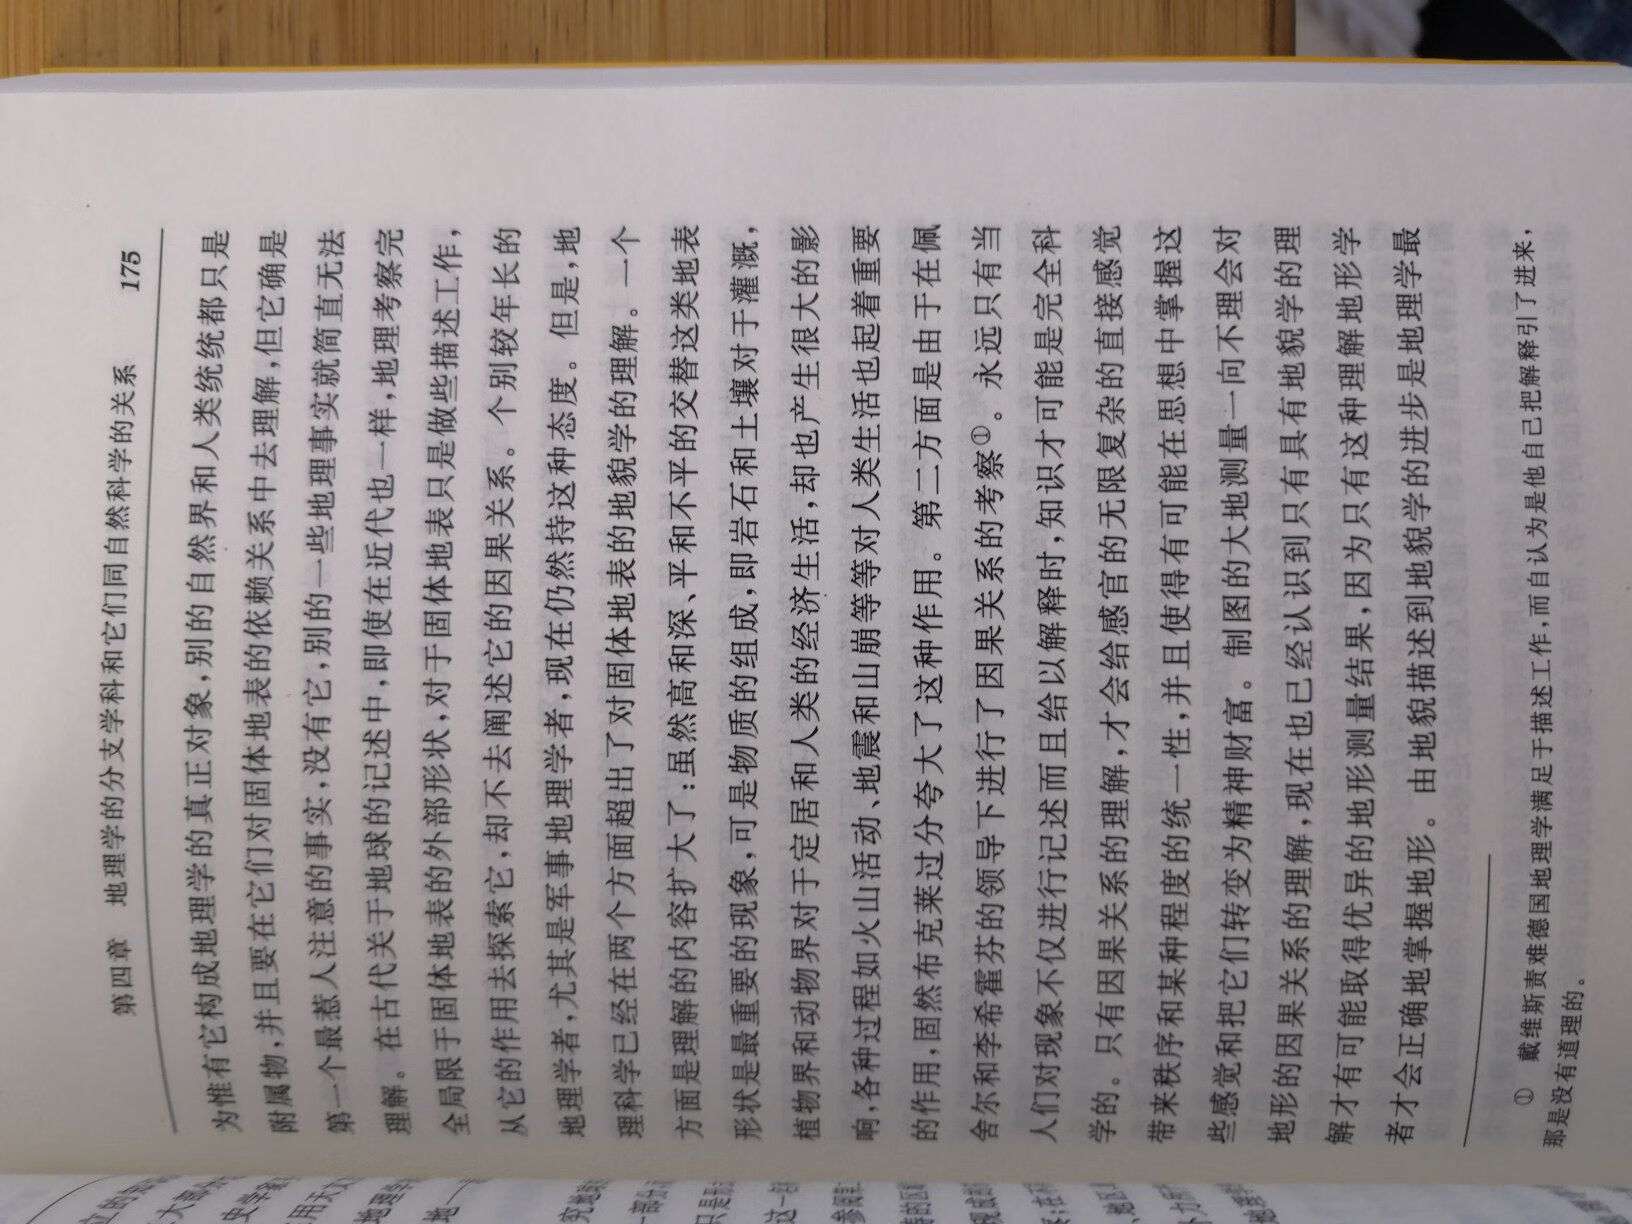 第四章 地理学的分支学科和它们同自然科学的关系 175
为惟有它构成地理学的真正对象,别的自然界和人类统统都只是
附属物,并且要在它们对固体地表的依赖关系中去理解,但它确是
第一个最惹人注意的事实,没有它,别的一些地理事实就简直无法
理解。在古代关于地球的记述中,即使在近代也一样,地理考察完
全局限于固体地表的外部形状,对于固体地表只是做些描述工作,
从它的作用去探索它,却不去阐述它的因果关系。个别较年长的
地理学者,尤其是军事地理学者,现在仍然持这种态度。但是,地
理科学已经在两个方面超出了对固体地表的地貌学的理解。一个
方面是理解的内容扩大了:虽然高和深、平和不平的交替这类地表
形状是最重要的现象,可是物质的组成,即岩石和土壤对于灌溉,
植物界和动物界对于定居和人类的经济生活,却也产生很大的影
响,各种过程如火山活动、地震和山崩等等对人类生活也起着重要
的作用,固然布克莱过分夸大了这种作用。第二方面是由于在佩
舍尔和李希霍芬的领导下进行了因果关系的考察①。永远只有当
人们对现象不仅进行记述而且给以解释时,知识才可能是完全科
学的。只有因果关系的理解,才会给感官的无限复杂的直接感觉
带来秩序和某种程度的统一性,并且使得有可能在思想中掌握这
些感觉和把它们转变为精神财富。制图的大地测量一向不理会对
地形的因果关系的理解,现在也已经认识到只有具有地貌学的理
解才有可能取得优异的地形测量结果,因为只有这种理解地形学
者才会正确地掌握地形。由地貌描述到地貌学的进步是地理学最
① 戴维斯责难德国地理学满足于描述工作,而自认为是他自己把解释引了进来,
那是没有道理的。